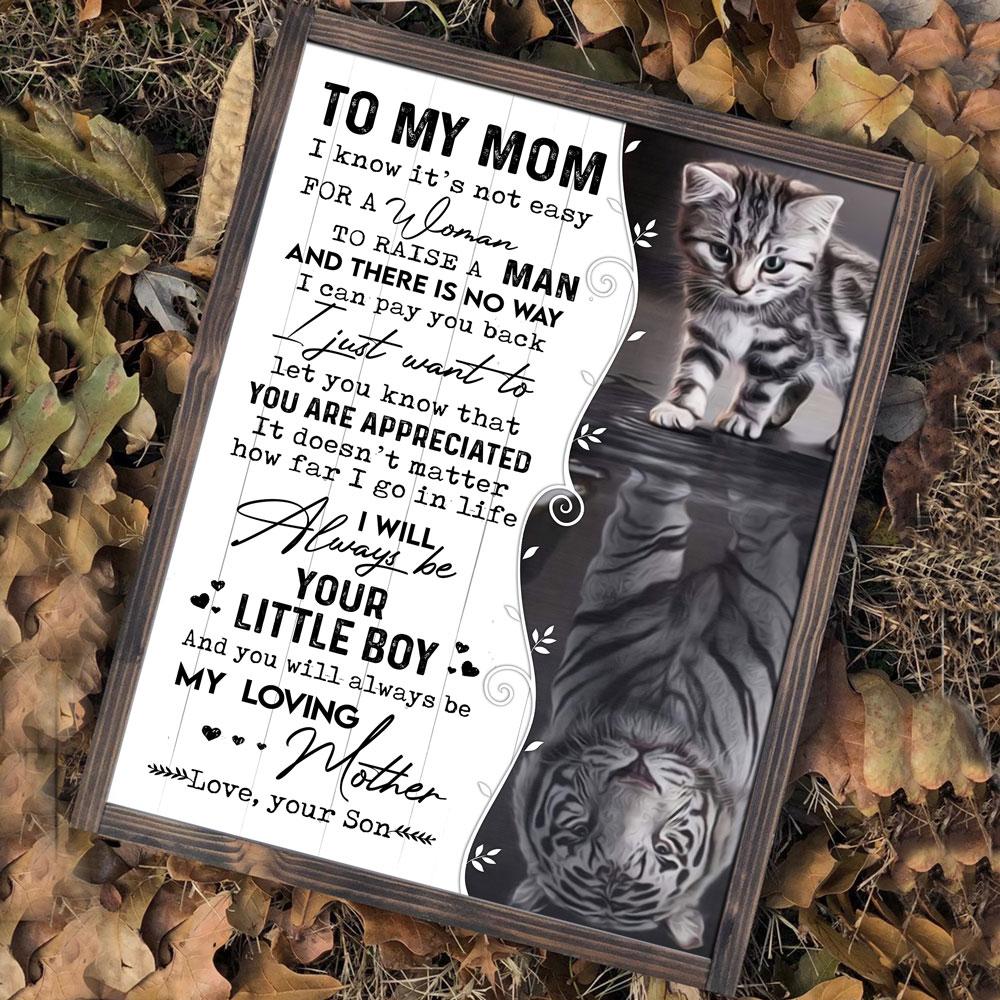 TO MY MOM
I know it's not easy
FOR A Woman
TO RAISE A MAN
AND THERE IS NO WAY
I can pay you back
I just want to
let you know that
YOU ARE APPRECIATED
It doesn't matter
how far I go in life
I WILL
Always be
YOUR
LITTLE BOY
And you will always be
MY LOVING
Mother
Love, your Son